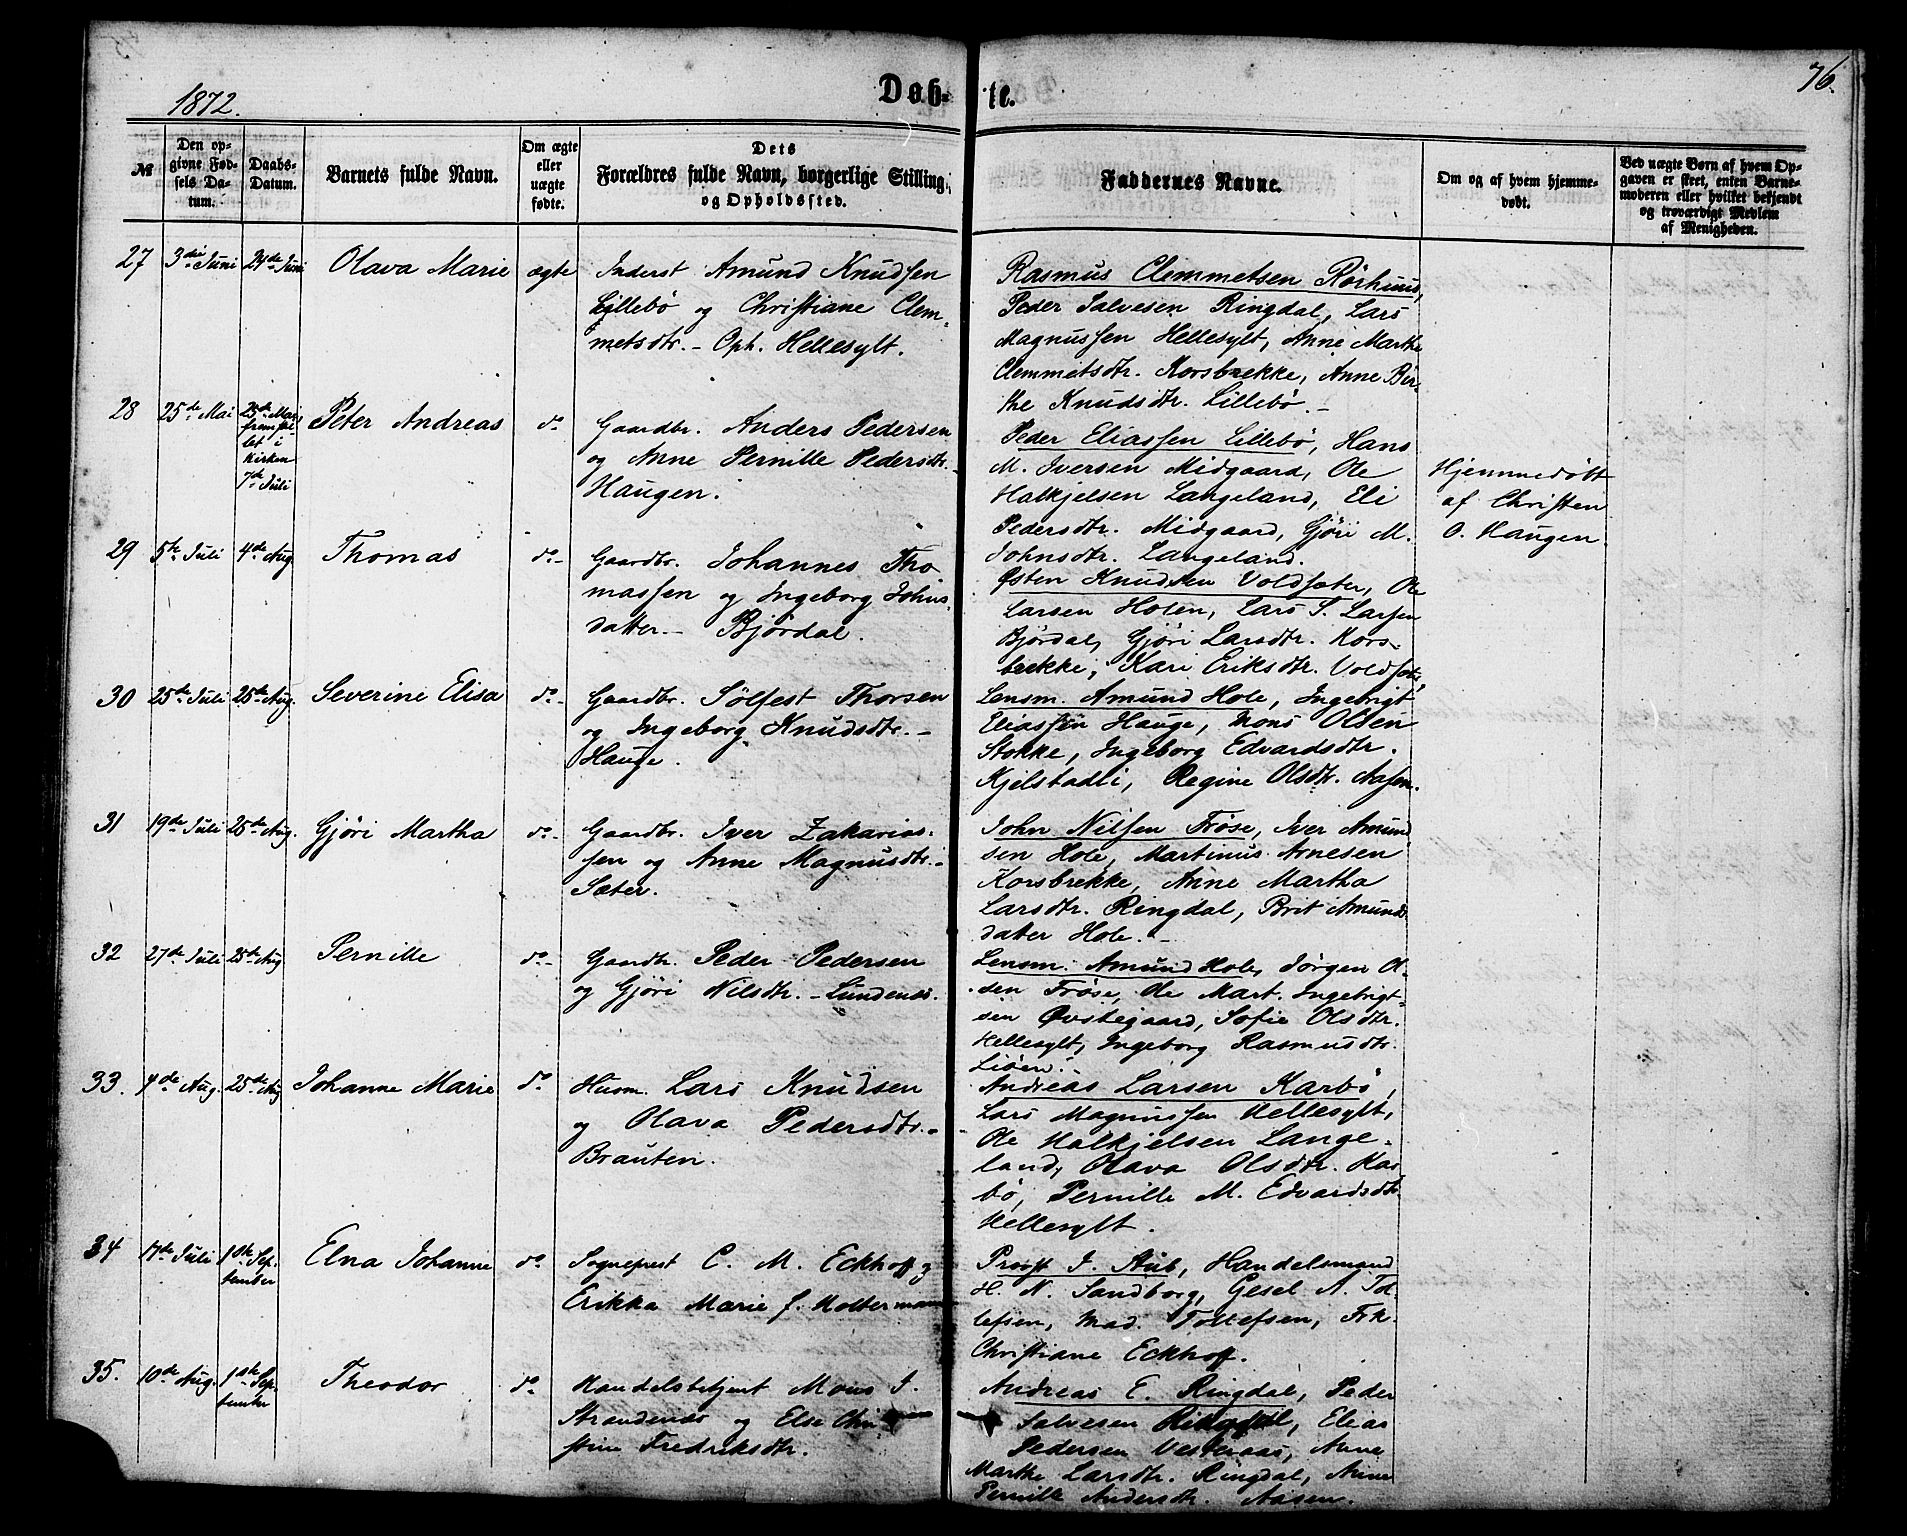 1872.
Døb-
te.
76.
№
Den op-
givne Fød-
sels Da-
tum.
Daabs-
Datum.
Barnets fulde Navn.
Om ægte
eller
uægte
fødte.
Dets
Forældres fulde Navn, borgerlige Stilling,
og Opholdssted.
Faddernes Navne.
Om og af hvem hjemme-
døbt.
Ved uægte Børn af hvem Op-
gaven er skeet, enten Barne-
moderen eller hvilket bekjendt
og troværdigt Medlem
af Menigheden.
27 3die Juni 24de Juni Olava Marie ægte
Inderst Amund Knudsen
Lillebø og Christiane Clem-
metsdtr. - Oph. Hellesylt.
Rasmus Clemmetsen Rørhuus,
Peder Salvesen Ringdal, Lars
Magnussen Hellesylt, Anne Marthe
Clemmetsdtr. Korsbrekke, Anne Bir-
the Knudsdtr. Lillebø. -
28 25de Mai
25de Mai,
fremstil-
let i
Kirken
7de Juli
Peter Andreas do
Gaardbr. Anders Pedersen
og Anne Pernille Pedersdtr. -
Haugen.
Peder Eliassen Lillebø, Hans
M. Iversen Midgaard, Ole
Halkjelsen Langeland, Eli
Pedersdtr. Midgaard, Gjøri M.
Johnsdtr. Langeland.
Hjemmedøbt
af Christen
O. Haugen.
29 5te Juli 4de Aug. Thomas do -
Gaardbr. Johannes Tho
massen og Ingeborg Johns
datter. - Bjørdal.
Østen Knudsen Voldsæter, Ole
Larsen Holen, Lars S. Larsen
Bjørdal, Gjøri Larsdtr. Kors-
brekke, Kari Eriksdtr. Voldsæter
30 25de Juli 25de Aug. Severine Elisa do -
Gaardbr. Sølfest Thorsen
og Ingeborg Knudsdtr. -
Hauge.
Lensm. Amund Hole, Ingebrigt
Eliassen Hauge, Mons Olsen
Stokke, Ingeborg Edvardsdtr.
Kjelstadli, Regine Olsdtr. Aasen.
31 19de Juli 25de Aug. Gjøri Martha do -
Gaardbr. Iver Zakarias-
sen og Anne Magnusdtr. -
Sæter.
John Nilsen Frøse, Iver Amund
sen Hole, Martinus Arnesen
Korsbrekke, Anne Martha
Larsdtr. Ringdal, Brit Amunds
datter Hole. -
32 27de Juli 25de Aug Pernille do -
Gaardbr. Peder Pedersen
og Gjøri Nilsdtr. - Lundenes.
Lensm. Amund Hole, Jørgen Ol-
sen Frøse, Ole Mart. Ingebrigt-
sen Øvstegaard, Sofie Olsdtr.
Hellesylt, Ingeborg Rasmusdtr.
Liøen. -
33. 4de Aug. 25de Aug Johanne Marie do
Husm. Lars Knudsen
og Olava Pedersdtr. -
Brauten.
Andreas Larsen Karbø,
Lars Magnussen Hellesylt,
Ole Halkjelsen Lange-
land, Olava Olsdtr. Kar
bø, Pernille M. Edvardsdtr.
Hellesylt.
34 17de Juli
1ste Sep-
tember
Elna Johanne do
Sognepræst C. M. Eckhoff og
Erikka Marie f. Holtermann
Provst J. Aub, Handelsmand
H. N. Sandborg, Gesel A. Tol
lefsen, Mad. Tollefsen, Frk.
Christiane Eckhoff.
35. 10de Aug.
1ste Sep-
tember
Theodor do
Handelsbetjent Mons J.
Strandenæs og Else Chri
stine Fredriksdtr.
Andreas E. Ringdal, Peder
Salvesen Ringdal, Elias
Pedersen Vesteraas, Anne
Marthe Larsdtr. Ringdal, Anne
Pernille Andersdtr. Aasen.